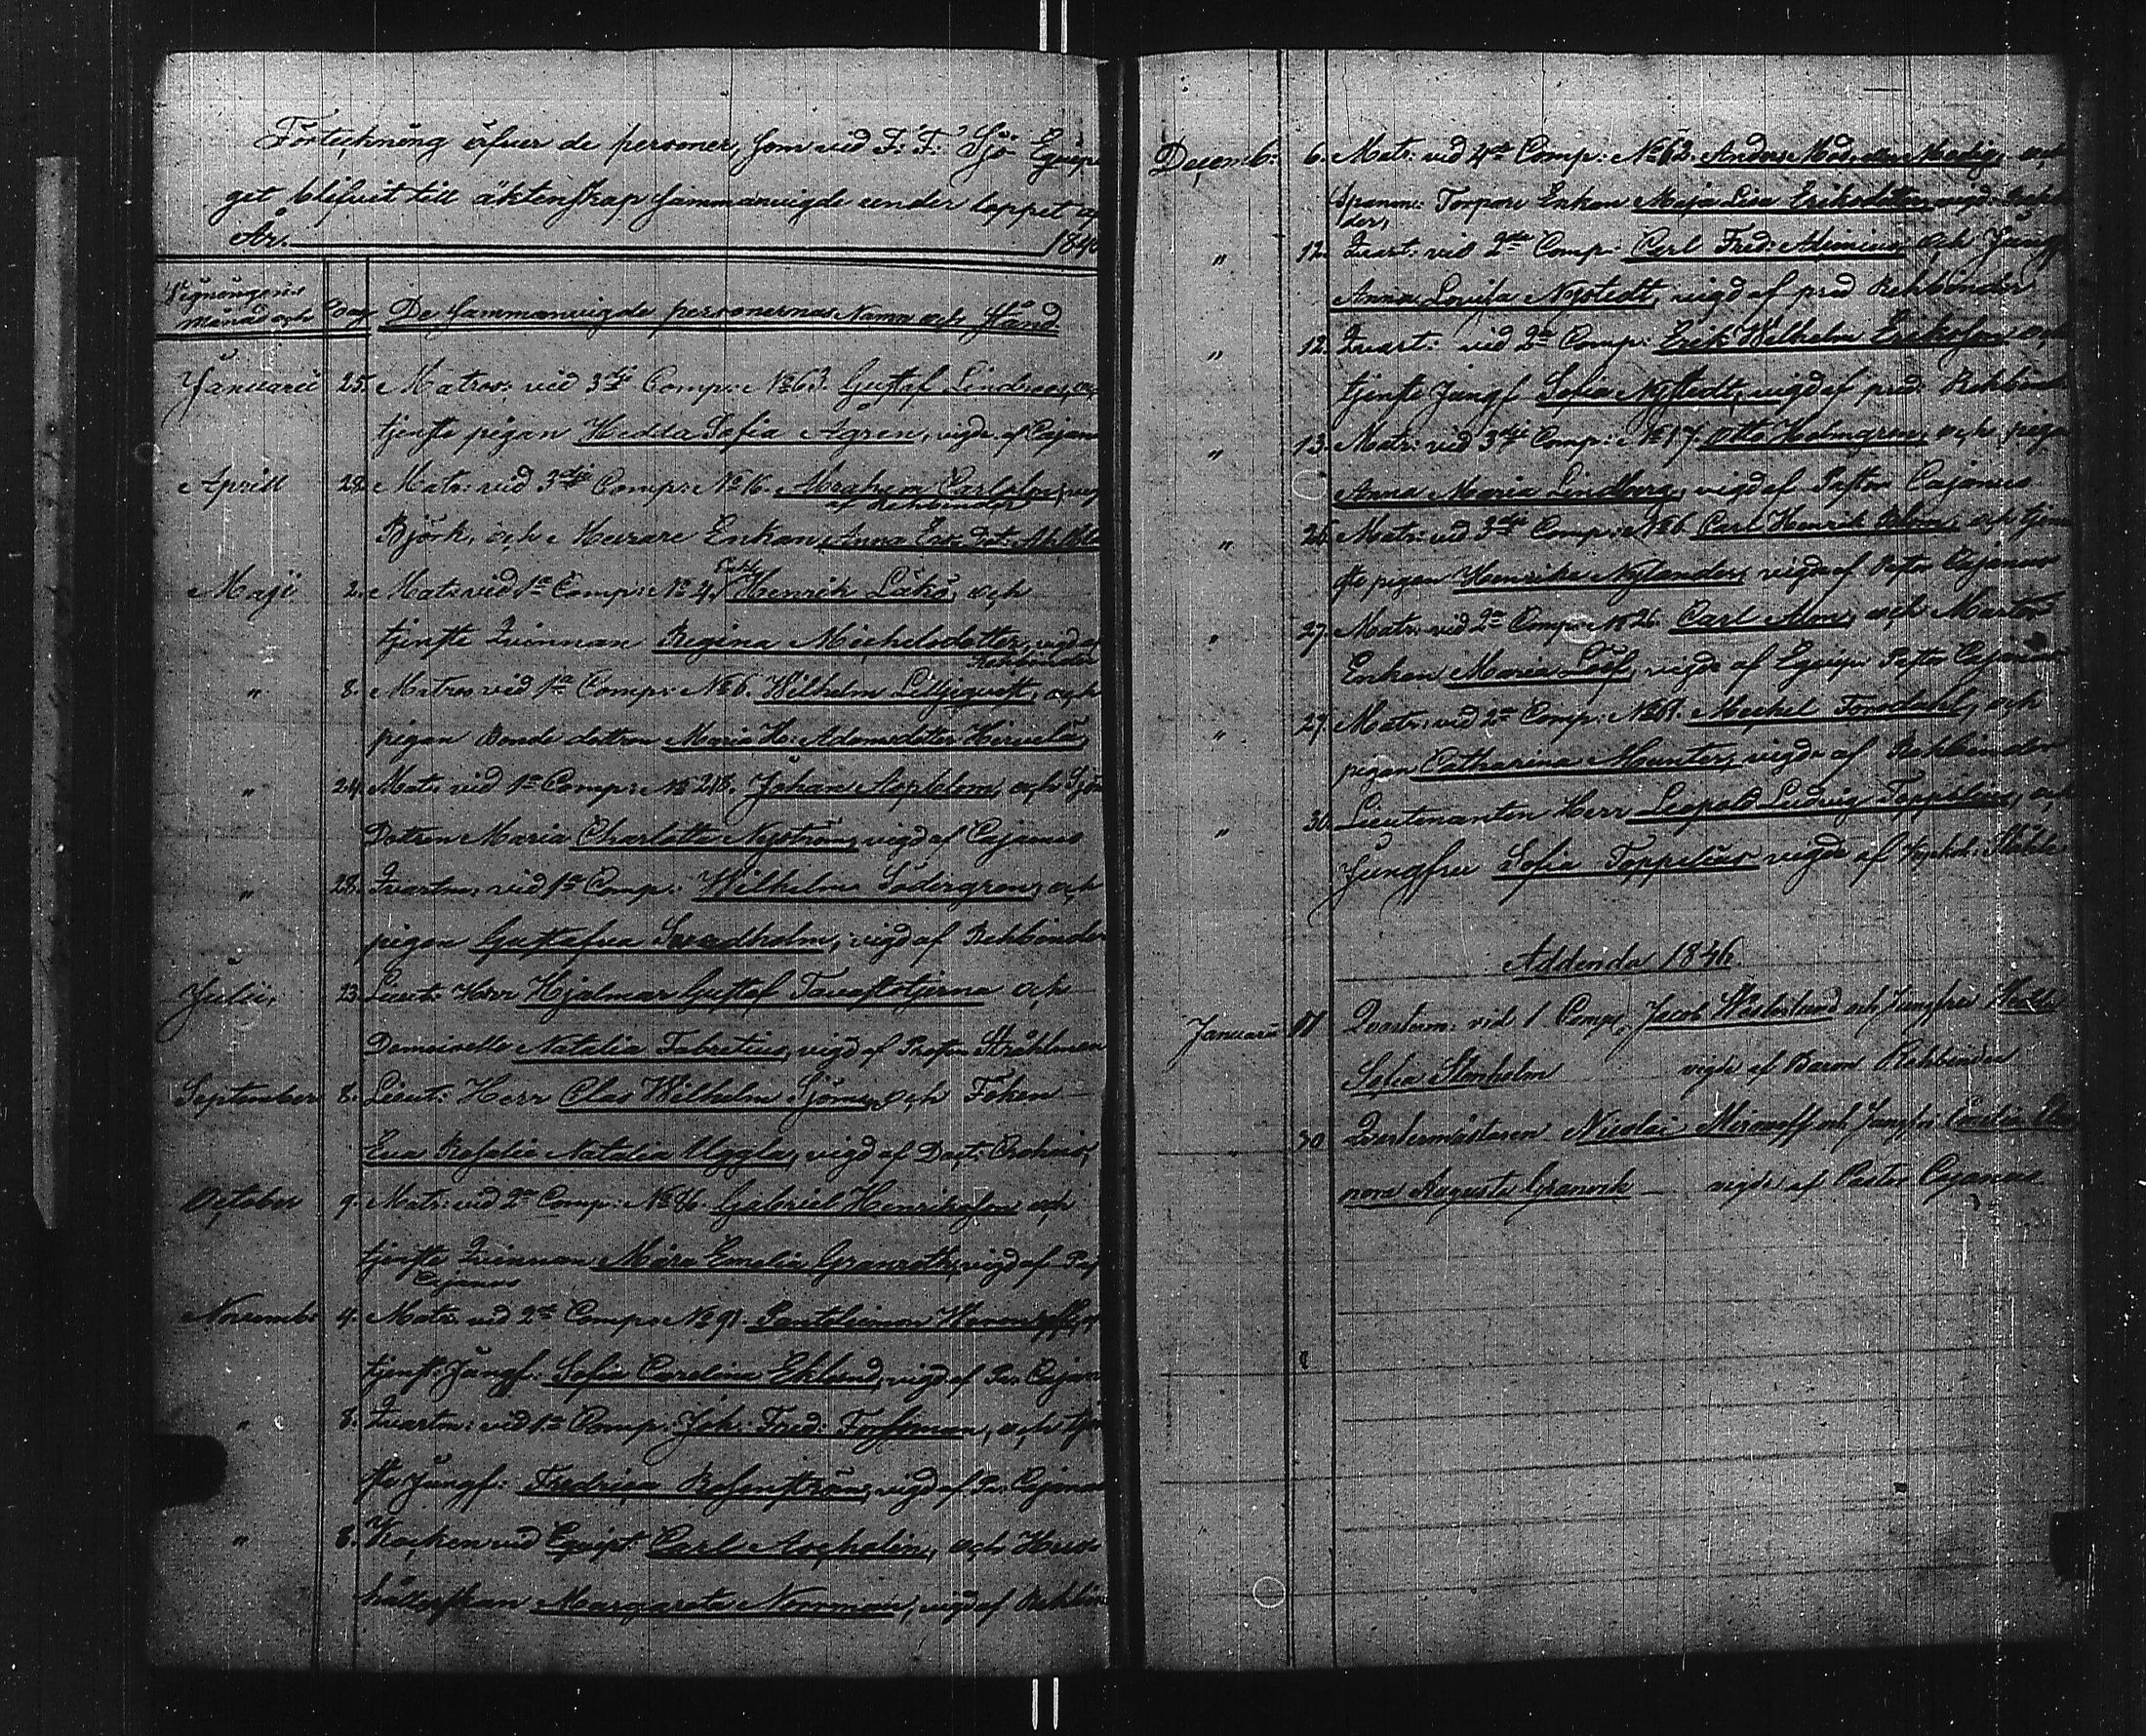 Förteckning öfver de personer, som vid F: F: Sjö Equipa
get blifvit till äktenskap sammanvigde under loppet af
År. 184
Vigningens
Månad och Dag De sammanvigde personernas Namn och Stånd
Januarii 25. Matros: vid 3die Comp: No 63. Gustaf Lindroos,
tjenste pigan Hedda Sofia Ågren, vigde af Cajan
Aprill 22. Matr: vid 3die Comp: No 16. Abraham Carlsson
af Rehbinder
Björk, och Enkan Anna
Maji 2. Matr: vid 1a Comp: No 4. Henrik och
tjenste Qvinnan Regina Michelsdotter, vigd af
Rehbinder
" 8. Matros vid 1a Comp: No 6. Wilhelm Liljeqvist, och
pigan Bonde dottren Maria H: Adamsdotter
" 24. Matr: vid 1a Comp: No 218. Johan och
Dottren Maria Charlotta Nyström, vigd af Cajanus
" 28. Qvartm: vid 1a Comp: Wilhelm Södergren, och
pigan Gustafva Sundholm, vigd af Rehbinder
Julii, 23. Lieut: Herr Hjalmar Gustaf Tavaststjerna och
Demoiselle Natalia Fabritius, vigd af Proften Stråhlman
September 8. Lieut: Herr Clas Wilhelm och Fröken
Eva Rosalie Natalia Uggla, vigd af Doct: Crohns,
October 9. Matr: vid 2a Comp: No 86. Gabriel Henriksson och
tjenste Qvinnan Maja Emelia Granroth, vigd af Past
Cajanus
Novemb: 4. Matr: vid 2a Comp: No 91.
tjenst Jungf: Sofia Carolina Eklund, vigd af Pas Cajan
" 8. Qvartm: vid 1a Comp: Joh: Fred: Forssman, och tjen
ste Jungf: Fredrica Rosenström, vigd af Pa: Cajanus
" 8. Kocken vid Equipt Carl och Hus
hållerskan Margareta Norrman, vigd af Rehbin
Decemb: 6. Matr: vid 4de Comp: No 62. Anders och
Torpare Enkan Maja Lisa Eriksdotter, vigd: Rehbin
der,
" 12. Qvart: vid 2dra Comp: Carl Fred: och Jungf
Anna Lovisa Nystedt, vigd af pred Rehbinder
" 12. Qvart: vid 2a Comp: Erik Wilhelm Erikson och
tjenste Jungf Sofia Nystedt, vigd af pred: Rehbind
" 13. Matr: vid 3die Comp: No 17 Otto Holmgren, och pigan
Anna Maria Lindberg, vigd af Pastor Cajanus
" 26. Matr: vid 3die Comp: No 6 Carl Henrik Blom, och tjen
ste pigan Henrika Nylander, vigd af Pastor Cajanus
" 27. Matr: vid 2a Comp: No 26. Carl Alm, och
Enkan Maria Löf, vigde af Equips Pastor Cajanus
" 27. Matr: vid 2a Comp: No 61. Mickel Forsdahl, och
pigan Catharina Munter, vigde af Rehbinder
" 30. Lieutenanten Herr Leopold Ludvig Toppelius, och
Jungfru Sofia Toppelius vigde af
Addenda 1846
Januarii 11 Qvarterm: vid 1 Comp: Jacob Westerlund och Jungfrun
Sofia Stenholm vigde af Baron Rehbinder
" 30 Qvartermästaren Nicolai Mironoff och Jungfru
nora Augusta Granvik – vigde af Pastor Cajanus